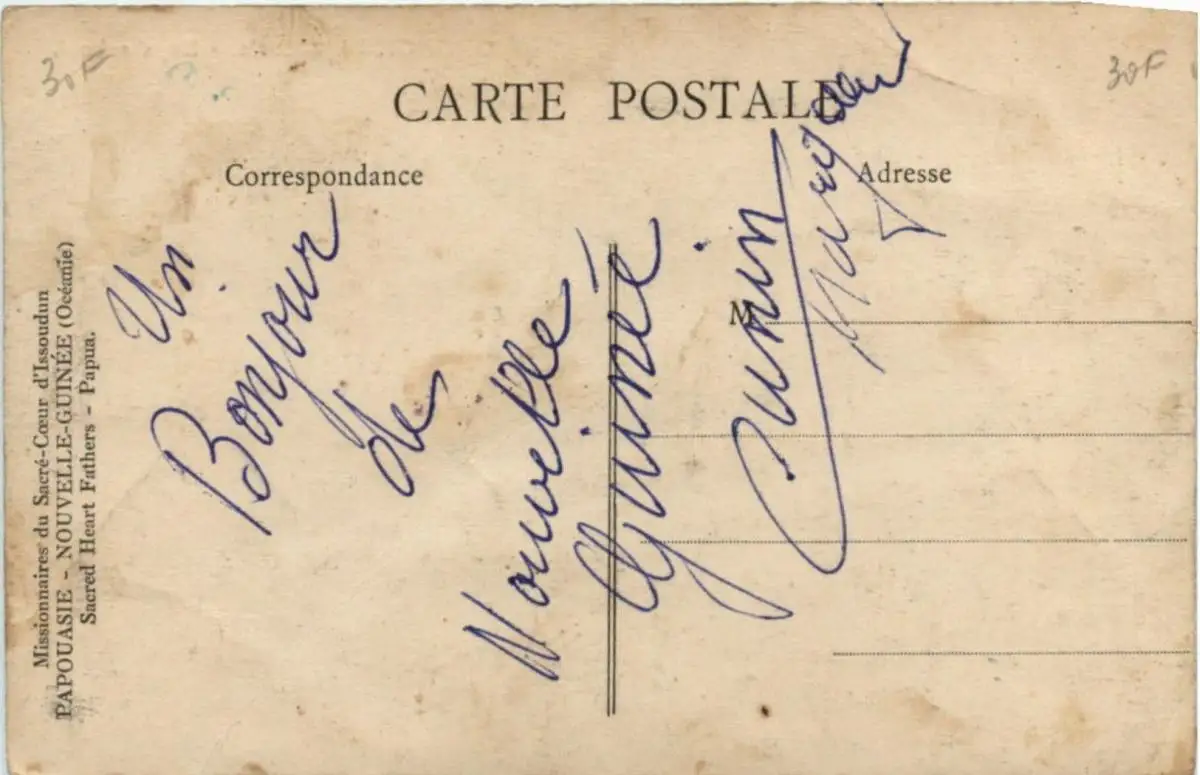 30F
30F
CARTE POSTALE
Correspondance
Adresse
M
Missionnaires du Sacré-Cœur d'Issoudun
PAPOUASIE - NOUVELLE-GUINÉE (Océanie)
Sacred Heart Fathers - Papua.
Un
Bonjour
de
Nouvelle
Guinée